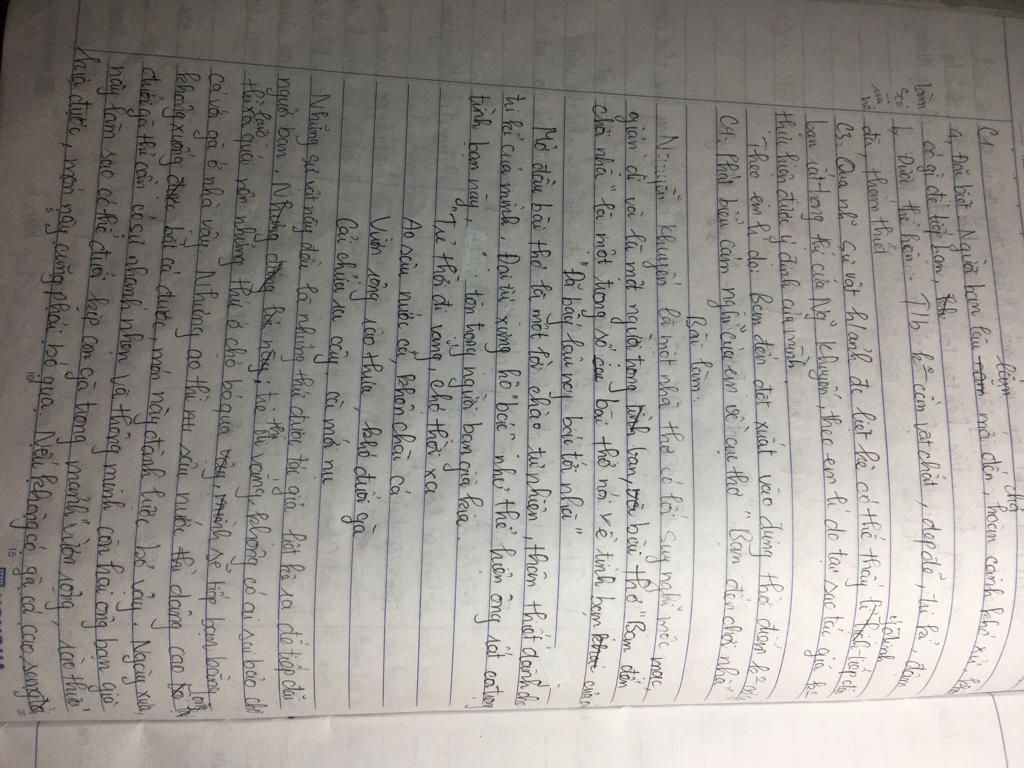 C2.
a, Đã bột Người bạn lâu liệm mở đến, hoàn cảnh khó xử, không
có gì để tiếp bạn,
b, Đưa thể hiện: T/b k° cần vật chất, đẹp đẽ, tự là, đậm
đà, thắm thiết
C3, Qua những sự vật h/ảnh đc liệt kê có thể thấy tiếp đãi
bạn rất hay thú của Ng~ Khuyến, theo em lí do tại sao tác giả k°
thực hiện được ý định của mình.
- Theo em lí do: Bạn đến đột xuất vào đúng thời điểm k° có
C4, Phát biểu cảm nghĩ của em về câu thơ "Bạn đến chơi nhà"
Bài làm:
Nguyễn Khuyến là một nhà thơ có lối suy nghĩ mộc mạc,
giản dị và là một người trọng tình bạn, bài thơ "Bạn đến
chơi nhà" là một trong số bài thơ nói về tình bạn của
"Đã bấy lâu nay bác tới nhà"
Mở đầu bài thơ là một lời chào tự nhiên, thân thiết dành cho
tri kỉ của mình. Đại từ xưng hô "bác" như thể hiện ông rất coi trọng
tình bạn này, tôn trọng người bạn già kia.
Trẻ thời đi vắng, chợ thời xa
Ao sâu nước cả, khôn chài cá
Vườn rộng rào thưa, khó đuổi gà
Cải chửa ra cây, cà mới nụ
Những sự vật này đều là những thứ được tác giả liệt kê ra để tiếp đãi
người bạn, Nhưng này, trẻ thì vắng không có ai sai bảo, chợ
thì quá xa nên những thứ ở chợ bỏ qua vậy mình sẽ tiếp bạn bằng
cá và gà ở nhà vậy. Nhưng ao thì sâu nước thì dâng cao
không xuống bắt cá được, món này đành lược bỏ vậy, Ngày xưa
đuổi gà thì cần có sự nhanh nhẹn và thông minh còn hai ông bạn già
này làm sao có thể đuổi kịp con gà trong mảnh vườn rộng, rào thưa
kia được, món này cũng phải bỏ qua. Nếu không có gà, cá
5
10
15
20